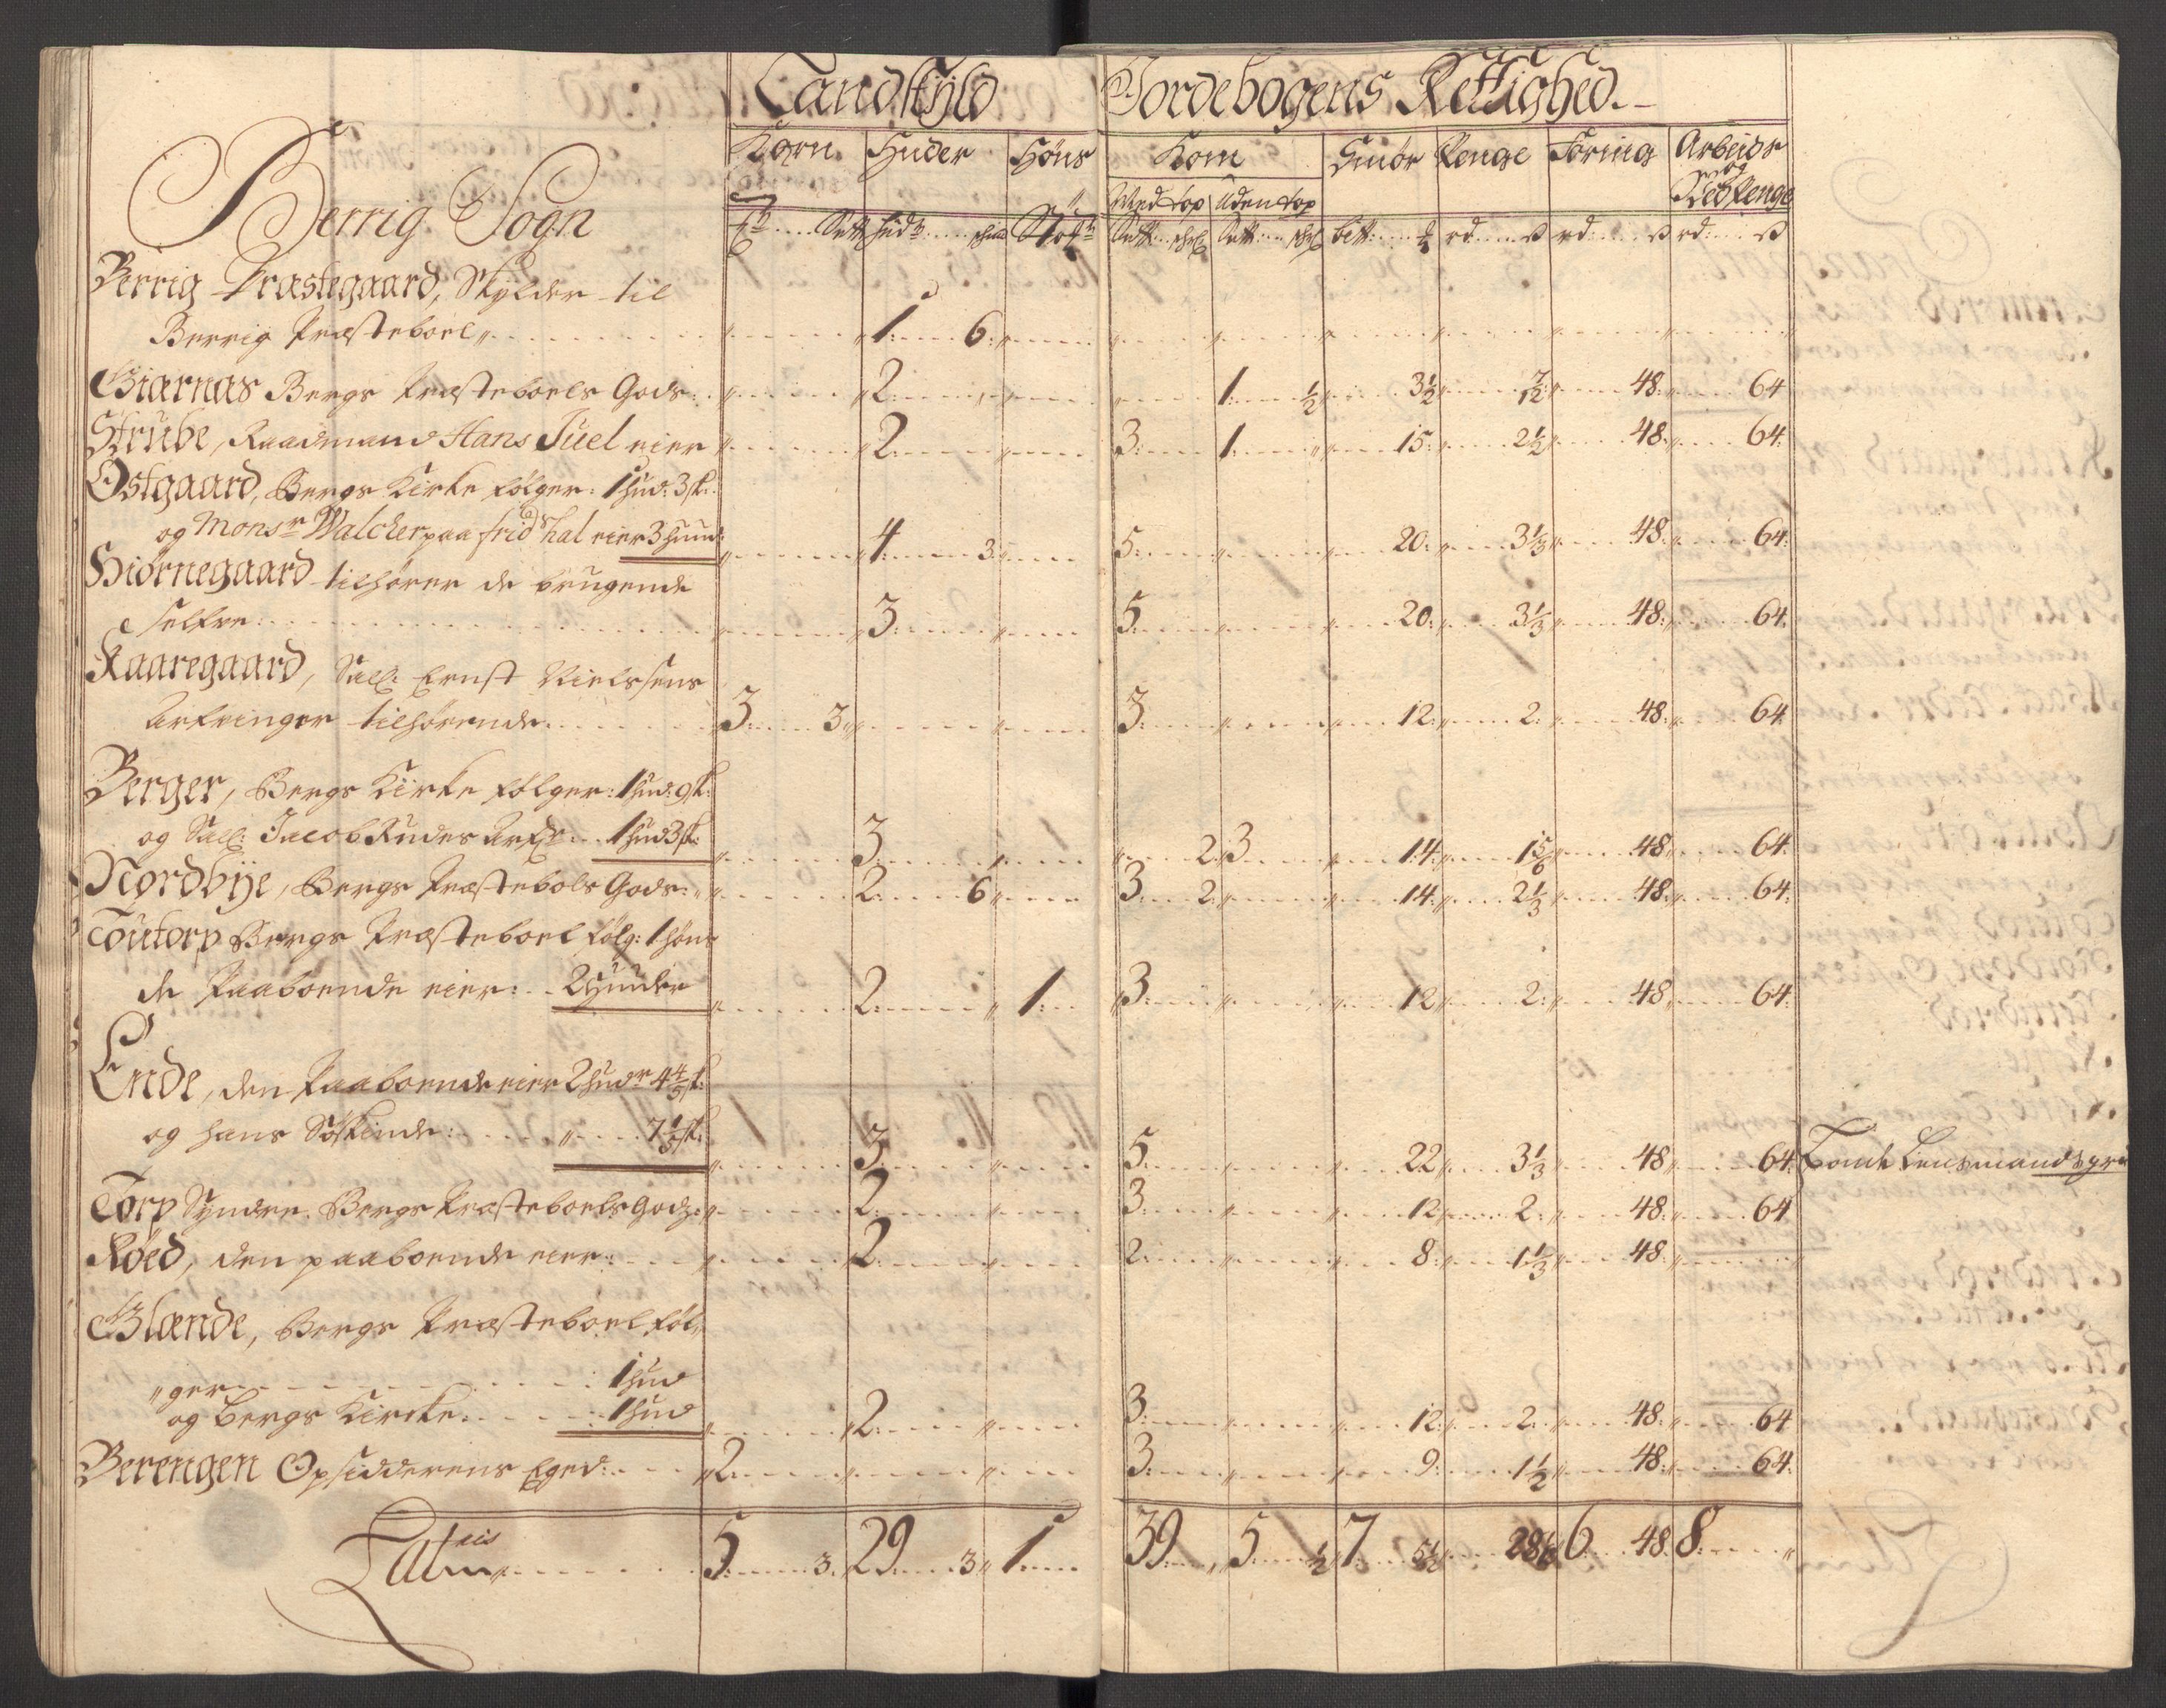 Landskÿld
Jordebogens Rettighed.
Korn Huder Höns
Korn Smör Penge Foring Arbeids
og
Ved Penge
Med Top Uden Top
Berrig Sogn
Berrig Præstegaard, Skÿlder til
Berrig Præsteboel 1 6
Biærnæs Bergs Præsteboels Gods 2 1 ½ 3½ 7/12 48 64
Strube, Raadmand Hans Juel eier 2 3 1 15 2½ 48 64
Östgaard, Bergs Kirke følger: 1 hud: 3 sk:
og Monsr Walcker paa fridshal eier 3 huud: 4 3 5 20 3⅓ 48 64
Hiörnegaard tilhører de brugende
selfve 3 5 20 3⅓ 48 64
Kaaregaard, Sall: Ernst Nielssens
Arfvinger tilhørende 3 3 3 12 2 48 64
Berger, Bergs Kirke følger: 1 hud: 9 sk:
og Sall: Jacob Rudes Arf: 1 hud 3 sk: 3 2 3 14 1 5/6 48 64
Nordbÿe, Bergs Præstebols Gods 2 6 3 2 14 2⅓ 48 64
Toutorp Bergs Præsteboel følg: 1 höns
de Paaboende eier: 2 huuder 2 1 3 12 2 48 64
Ende, den Paaboende eier 2 hudr 4⅘ sk:
og hans Søskende 7⅕ sk: 3 5 22 3⅓ 48 64 Bonde Lensmandsgrd
Torp Syndre. Bergs Præsteboels Godz 2 3 12 2 48 64
Röed, den paaboende eier 2 2 8 1⅓ 48
Blænde, Bergs Præsteboel føl
"ger 1 hud
og Bergs Kircke 1 hud 2 3 12 2 48 64
Berengen Opsidderens Eged 2 3 9 1½ 48 64
Lateris 5 3 29 3 1 39 5 ½ 7 5½ 28⅙ 6 48 8